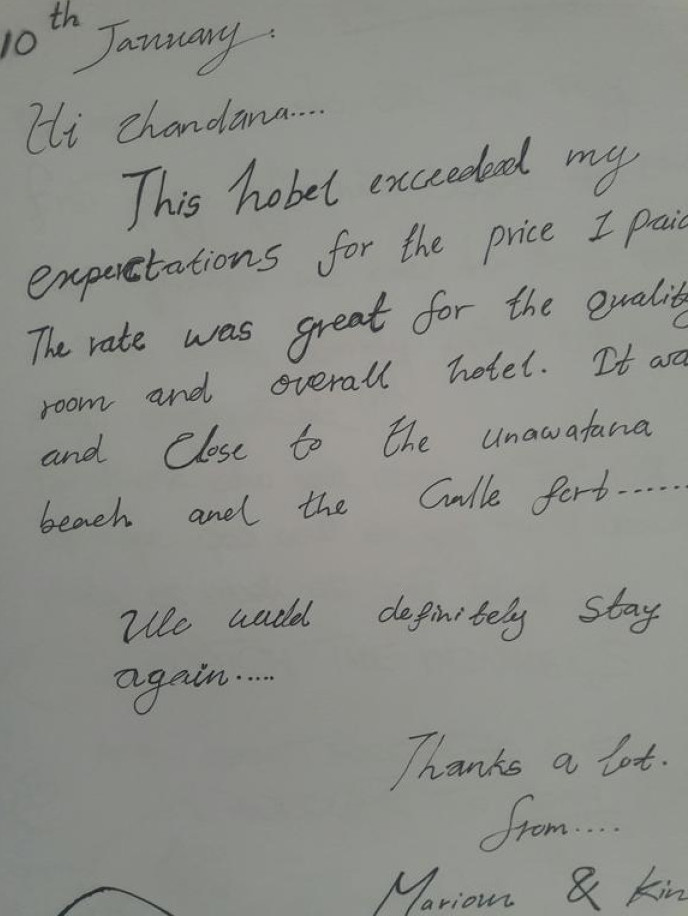 10th January.
Hi Chandana....
This hotel exceeded my
expectations for the price I paid
The rate was great for the quality
room and overall hotel. It wa
and close to the unawatana
beach and the Galle fort------
We would definitely stay
again.....
Thanks a lot.
from....
Marioun & Kin